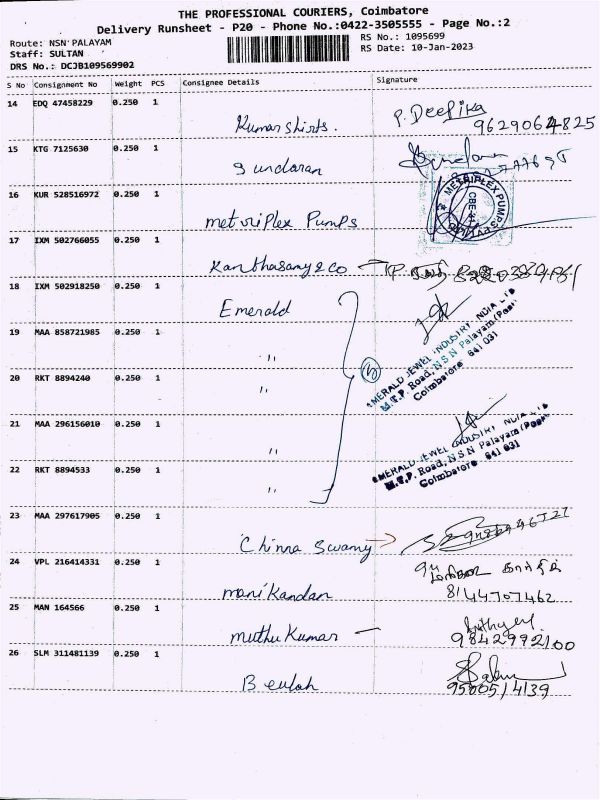 THE PROFESSIONAL COURIERS, Coimbatore
Delivery Runsheet - P20 - Phone No.:0422-3505555 - Page No.:2
Route: NSN PALAYAM
Staff: SULTAN
DRS No.: DCJB109569902
RS No.: 1095699
RS Date: 10-Jan-2023
S No Consignment No Weight PCS Consignee Details Signature
14 EDQ 47458229 0.250 1
Kumar shirts. P. Deepika
9629064825
15 KTG 7125630 0.250 1
Sundaran
16 KUR 528516972 0.250 1
Metriplex Pumps METRIPLEX PUMPS
17 IXM 502766055 0.250 1
Kanthasamy & co
18 IXM 502918250 0.250 1
Emerald
19 MAA 858721985 0.250 1
"
EMERALD JEWEL INDUSTRY INDIA LTD
M.T.P. Road, N S N Palayam (Post)
Coimbatore 641 031
20 RKT 8894240 0.250 1
"
21 MAA 296156010 0.250 1
"
EMERALD JEWEL INDUSTRY INDIA LTD
M.T.P. Road, N S N Palayam (Post)
Coimbatore - 641 031
22 RKT 8894533 0.250 1
"
23 MAA 297617905 0.250 1
Chinna Swamy
24 VPL 216414331 0.250 1
Manikandan
8144707462
25 MAN 164566 0.250 1
Muthu Kumar
9842992100
26 SLM 311481139 0.250 1
Beulah
9500514139